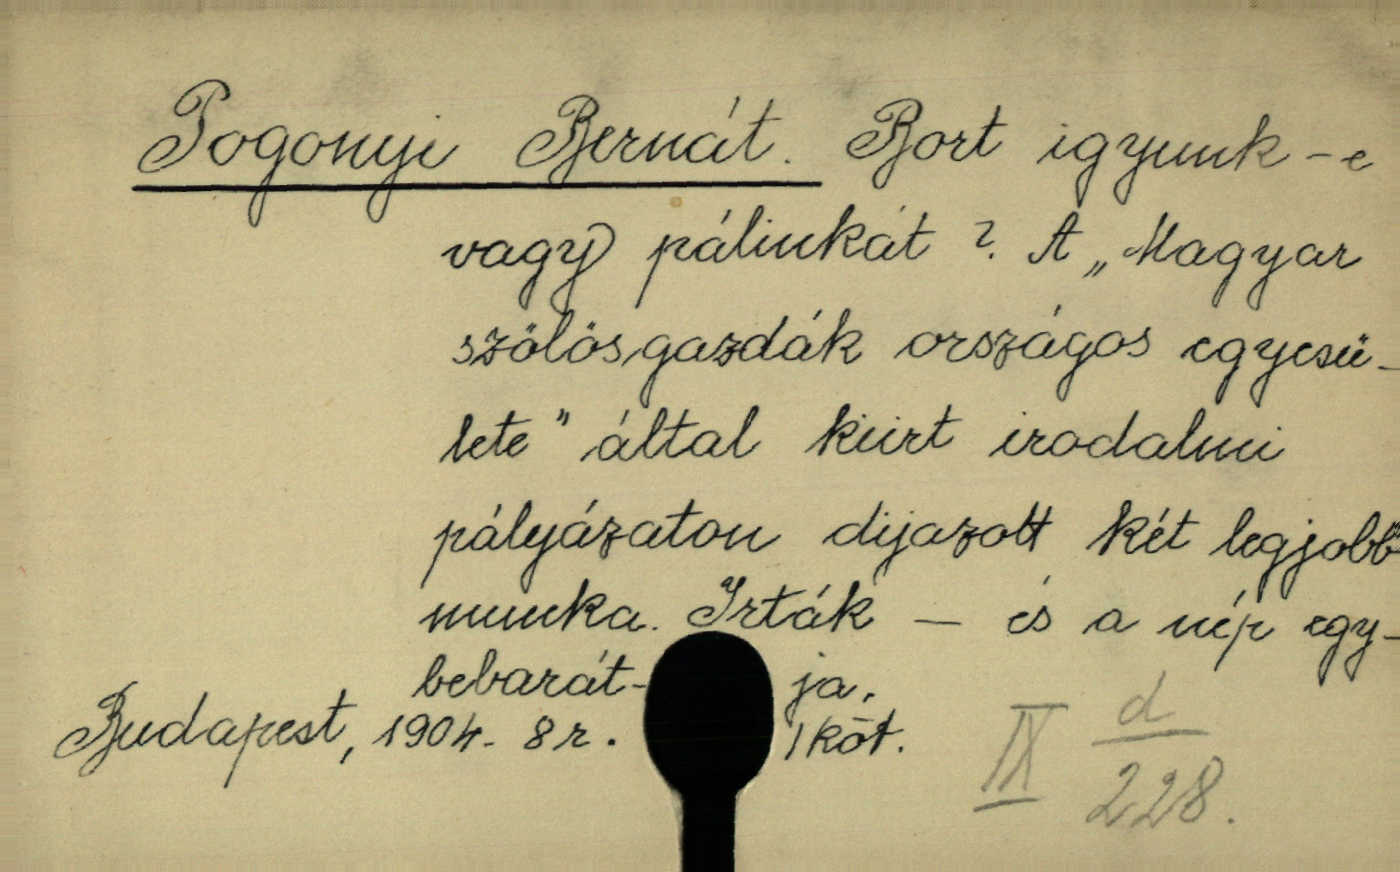 Pogonyi Bernát. Bort igyunk-e
vagy pálinkát? A „Magyar
szölösgazdák országos egyesü-
lete" által kiirt irodalmi
pályázaton dijazott két legjobb
munka. Irták — és a nép egy-
bebarát- ja.
Budapest, 1904. 8r. 1 köt.
IX d
228.